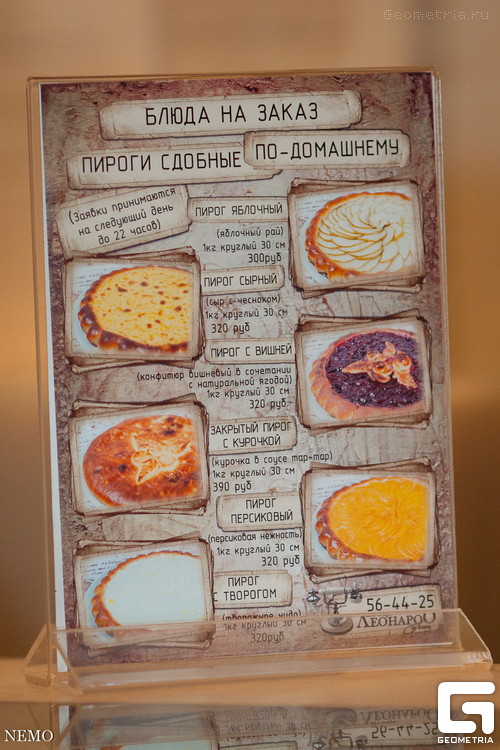 Geometria.ru
БЛЮДА НА ЗАКАЗ
ПИРОГИ СДОБНЫЕ ПО-ДОМАШНЕМУ
(Заявки принимаются
на следующий день
до 22 часов)
ПИРОГ ЯБЛОЧНЫЙ
(яблочный рай)
1кг круглый 30 см
300руб
ПИРОГ СЫРНЫЙ
(сыр с чесноком)
1кг круглый 30 см
320 руб
ПИРОГ С ВИШНЕЙ
(конфитюр вишнёвый в сочетании
с натуральной ягодой)
1кг круглый 30 см
320 руб.-
ЗАКРЫТЫЙ ПИРОГ
С КУРОЧКОЙ
(курочка в соусе тар-тар)
1кг круглый 30 см
390 руб
ПИРОГ
ПЕРСИКОВЫЙ
(персиковая нежность)
1кг круглый 30 см
320 руб
ПИРОГ
С ТВОРОГОМ
(творожное чудо)
1кг круглый 30 см
320руб
56-44-25
ЛЕОНАРDО
NEMO
GEOMETRIA